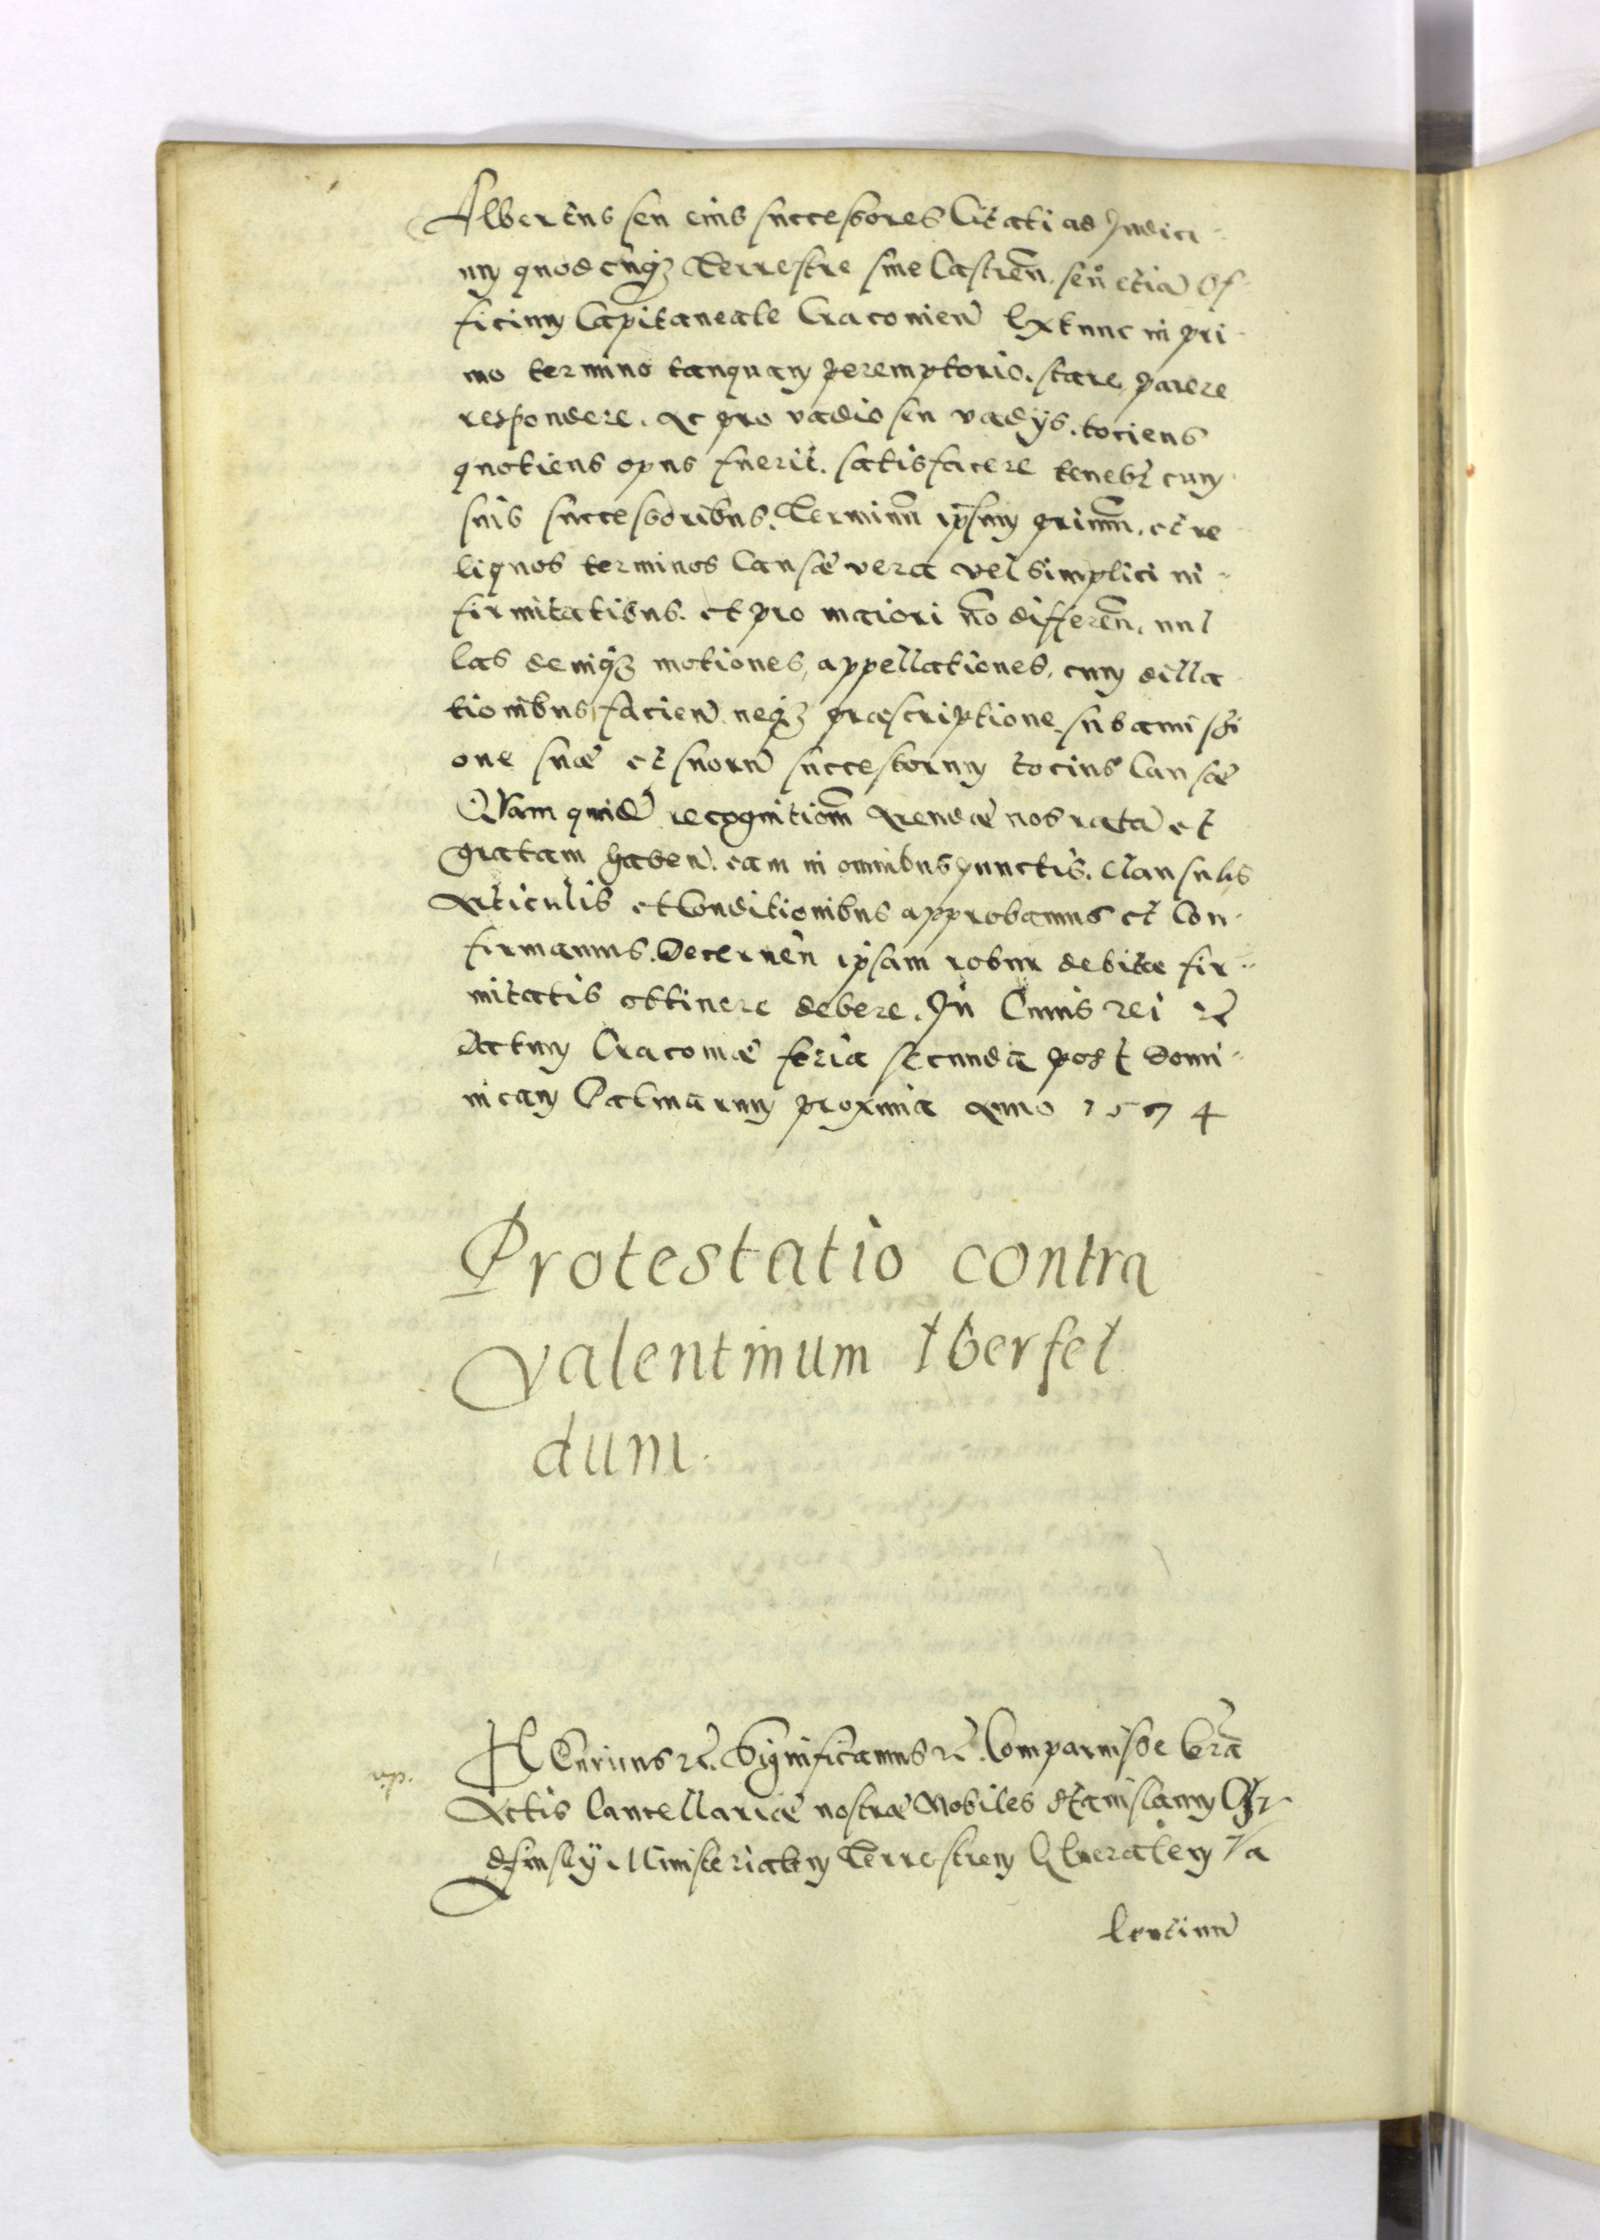 Albertus seu eius successores Citati ad Judici-
um quodcunq3 Terrestre siue Castren̄. seu etiā Of-
ficium Capitaneale Cracouien̄ Extunc in pri-
mo termino tanquam peremptorio. stare, parere
respondere. Ac pro vadio seu vadijs. tociens
quotiens opus fuerit. satisfacere tenebr̄ cum
suis successoribus. Terminū ipsum primū. et re
liquos terminos Causæ vera vel simplici in-
firmitatibus. et pro maiori nō differen̄. nul
las deniq3 motiones, appellationes, cum dilla
tionibus facien̄ neq3 præscriptione sub amissi
one suæ et suorū successorum tocius Causæ
Quam quidē recognitionē Arendæ nos ratā et
gratam haben̄. eam in omnibus punctis. Clausulis
Articulis et Conditionibus approbamus et Con-
firmamus. Decernen̄ ipsam robur debitæ fir-
mitatis obtinere debere. In Cuius rei rē
Actum Cracouiæ feria secunda post Domi-
nicam Palmarum proxima Anno 1574
Protestatio contra
Valentinum Iberfel
dum.
HEnricus rē. Significamus rē. Comparuisse corā
Actis Cancellariæ nostræ Nobiles Stanislaum
Ministerialem Terrestrem Generalem Va
lentinū